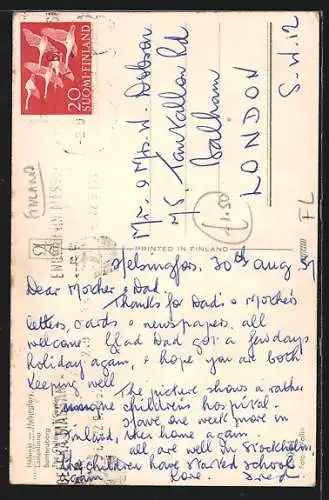 20
SUOMI-FINLAND
FINLAND
Mr. & Mrs. W. Dobson
Balham
LONDON
S.W.12
1.50
FL
PRINTED IN FINLAND
Helsingfors, 30th Aug
Dear Mother & Dad,
Thanks for Dad's & Mother's
letters, cards & newspapers. all
welcome. Glad Dad got a few days
holiday again, & hope you are both
keeping well
The picture shows a rather
childrens hospital.
have one week more in
Finland, then home again.
all are well in Stockholm,
the children have started school
again
Love.
Helsinki — Helsingfors
Lastenlinna
Barnens